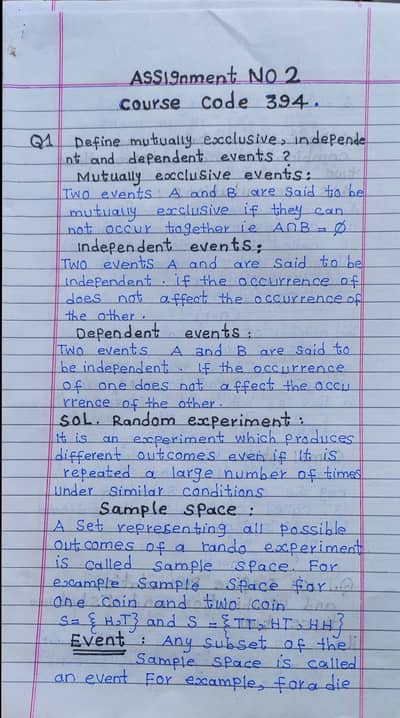 ASSIgnment NO 2
Course Code 394.
Q1 Define mutually exclusive, independe
nt and dependent events ?
Mutually exclusive events:
Two events A and B are said to be
mutually exclusive if they can
not occur together i.e A∩B = Ø
Independent events:
Two events A and are said to be
independent. if the occurrence of
does not affect the occurrence of
the other.
Dependent events:
Two events A and B are said to
be independent. If the occurrence
of one does not affect the occu
rrence of the other.
SOL. Random experiment:
It is an experiment which produces
different outcomes even if It is
repeated a large number of times
under similar conditions
Sample space:
A Set representing all possible
outcomes of a rando experiment
is called sample space. For
example Sample Space for
one coin and two coin
S= { H,T} and S = {TT, HT, HH}
Event : Any subset of the
Sample space is called
an event For example, for a die